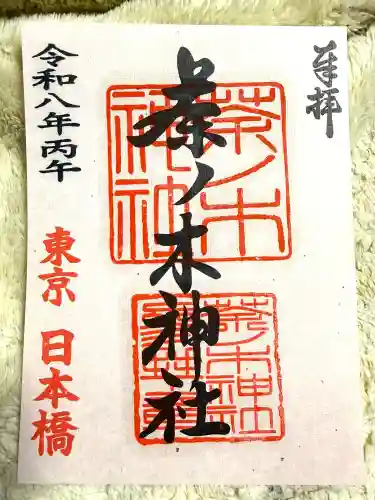 奉拝
茶ノ木神社
令和八年丙午
東京 日本橋
茶ノ木
神社
茶木神